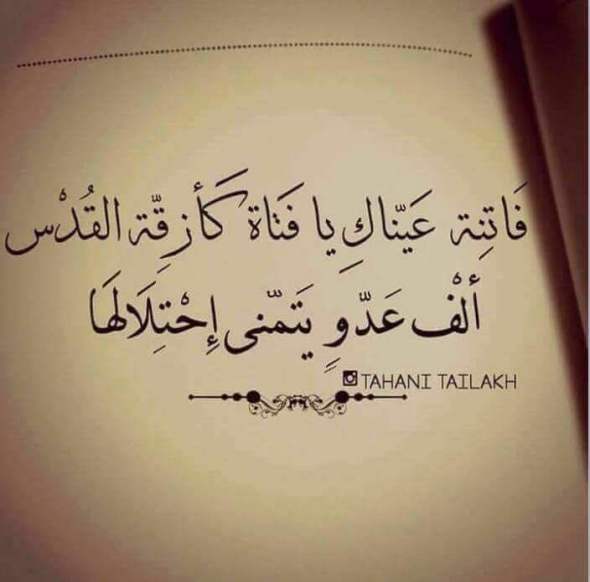 فَاتِنِة عَيّناكِ يا فَتاة كَأزقِّة القُدْس
ألْف عَدّوٍ يَتمّنى إحْتِلَالهَا
TAHANI TAILAKH